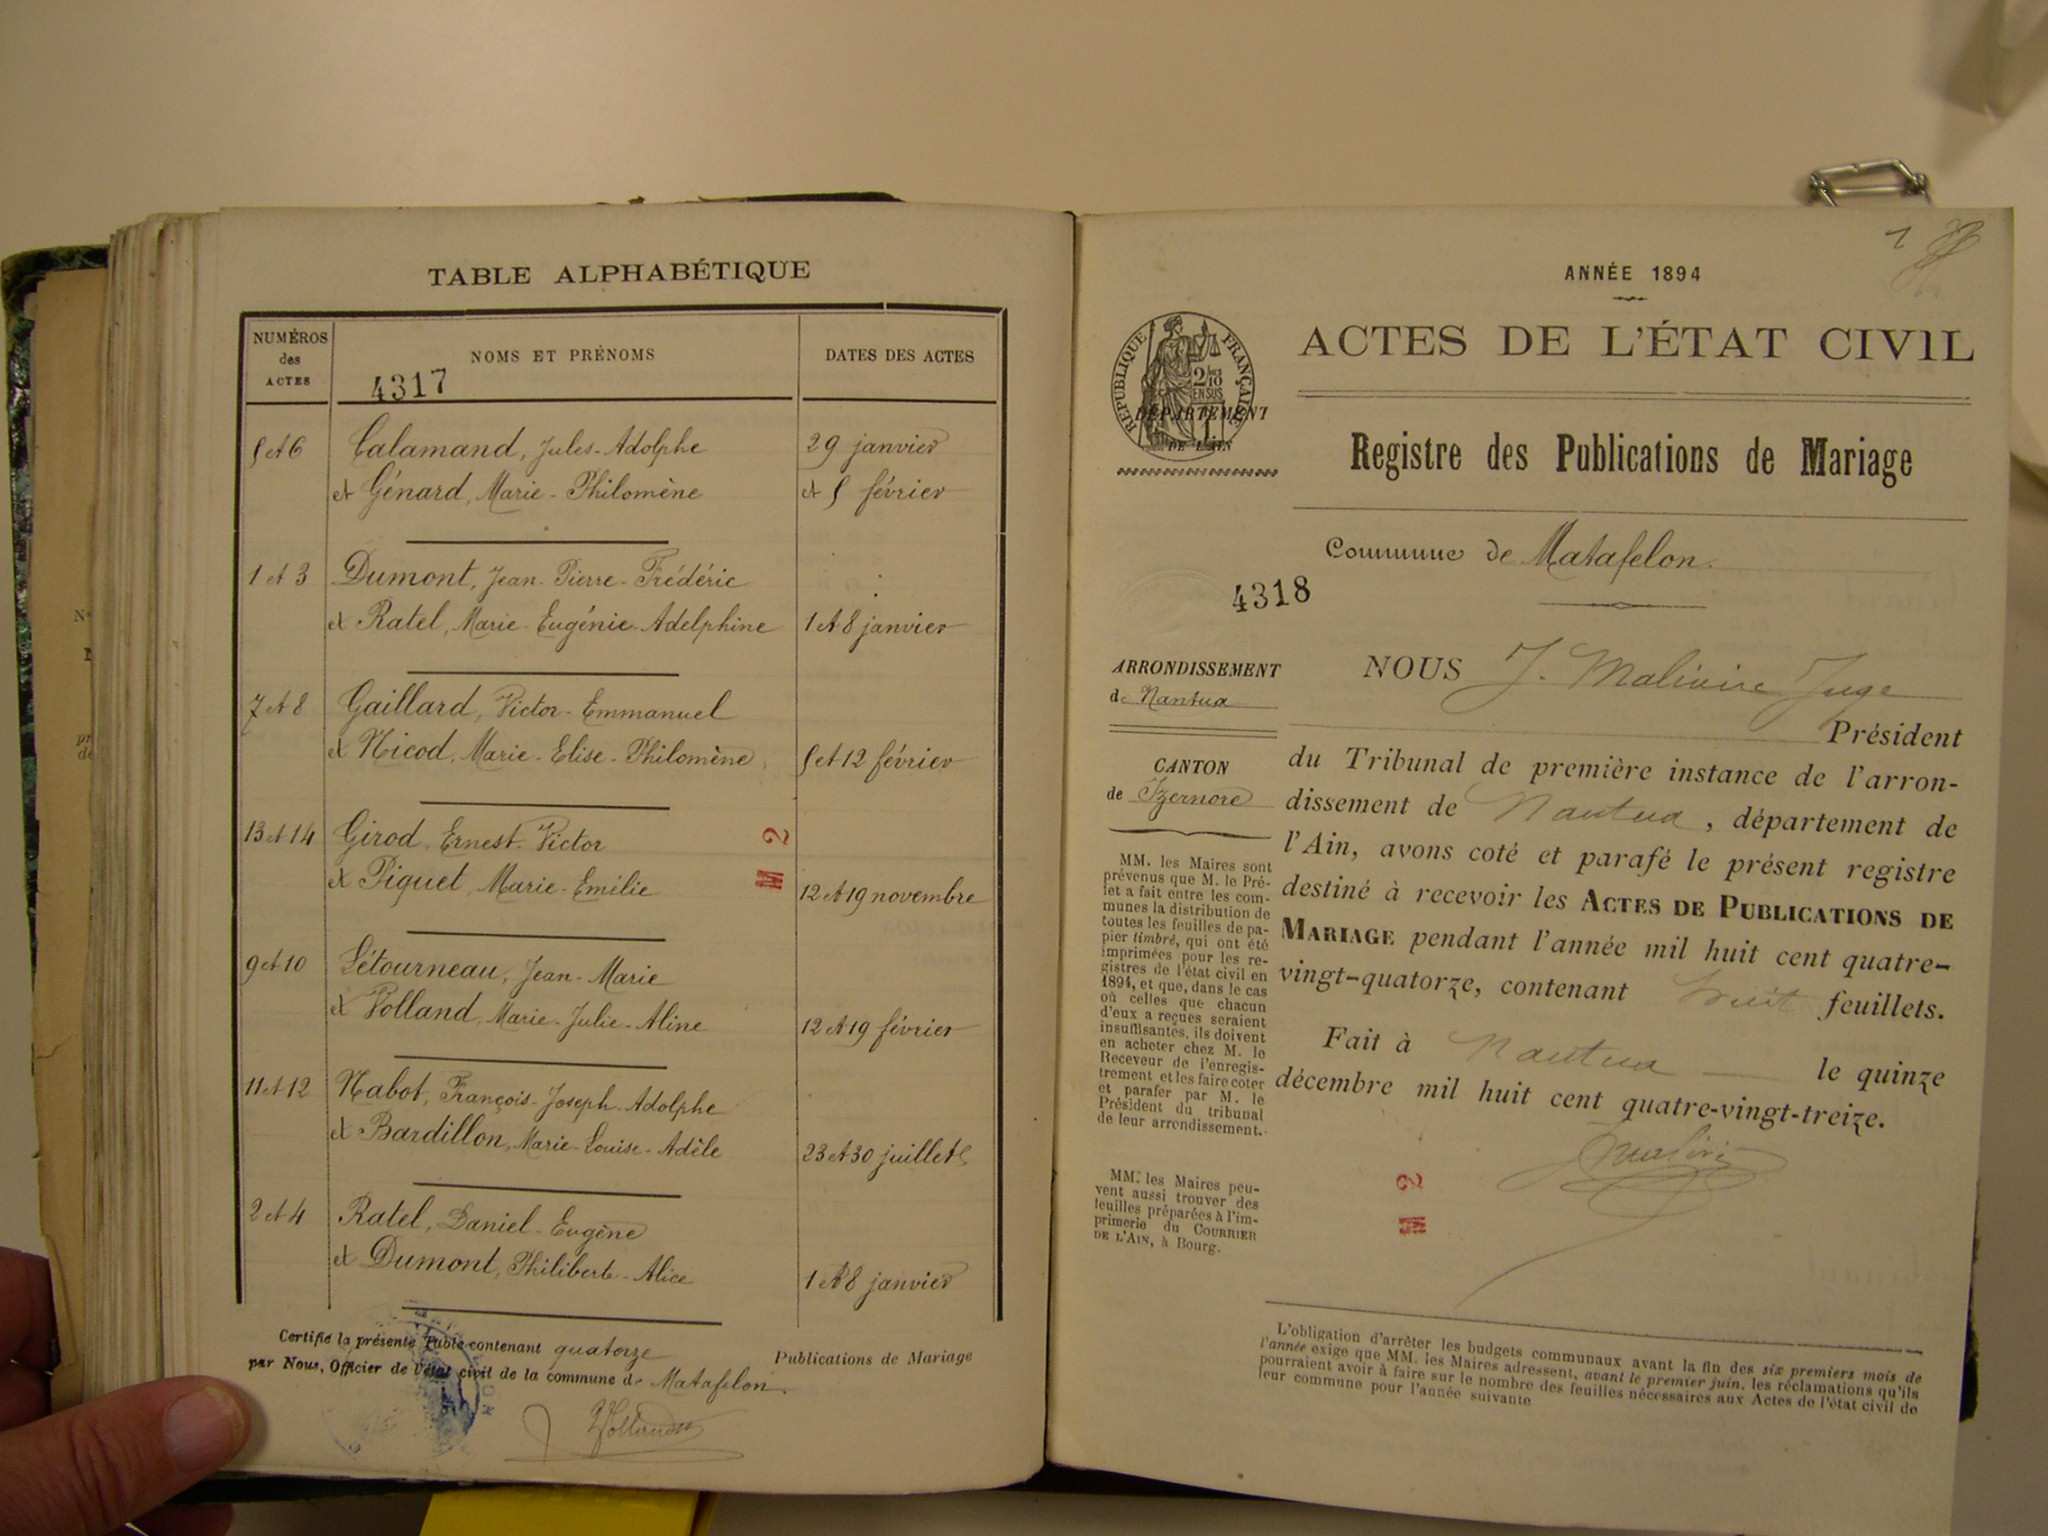 TABLE ALPHABÉTIQUE
NUMÉROS des ACTES
NOMS ET PRÉNOMS
DATES DES ACTES
4317
5 et 6 Calamand, Jules-Adolphe 29 janvier
et Génard, Marie-Philomène et 5 février
1 et 3 Dumont, Jean-Pierre-Frédéric
et Ratel, Marie-Eugénie-Adelphine 1 et 8 janvier
7 et 8 Gaillard, Victor-Emmanuel
et Nicod, Marie-Elise-Philomène 5 et 12 février
13 et 14 Girod, Ernest-Victor
et Piquet, Marie-Emélie 12 et 19 novembre
9 et 10 Létourneau, Jean-Marie
et Volland, Marie-Julie-Aline 12 et 19 février
11 et 12 Nabot, François-Joseph-Adolphe
et Bardillon, Marie-Louise-Adèle 23 et 30 juillet
2 et 4 Ratel, Daniel-Eugène
et Dumont, Philiberte-Alice 1 et 8 janvier
M 2
Certifié la présente Table contenant quatorze Publications de Mariage
par Nous, Officier de l'état civil de la commune de Matafelon.
1
ANNÉE 1894
ACTES DE L'ÉTAT CIVIL
RÉPUBLIQUE FRANÇAISE
DÉPARTEMENT
DE L'AIN
Registre des Publications de Mariage
Commune de Matafelon.
4318
ARRONDISSEMENT
de Nantua
CANTON
de Izernore
MM. les Maires sont
prévenus que M. le Pré-
fet a fait entre les com-
munes la distribution de
toutes les feuilles de pa-
pier timbré, qui ont été
imprimées pour les re-
gistres de l'état civil en
1894, et que, dans le cas
où celles que chacun
d'eux a reçues seraient
insuffisantes, ils doivent
en acheter chez M. le
Receveur de l'enregis-
trement et les faire coter
et parafer par M. le
Président du tribunal
de leur arrondissement.
MM. les Maires peu-
vent aussi trouver des
feuilles préparées à l'im-
primerie du COURRIER
DE L'AIN, à Bourg.
NOUS J. Juge
Président
du Tribunal de première instance de l'arron-
dissement de Nantua, département de
l'Ain, avons coté et parafé le présent registre
destiné à recevoir les ACTES DE PUBLICATIONS DE
MARIAGE pendant l'année mil huit cent quatre-
vingt-quatorze, contenant huit feuillets.
Fait à Nantua le quinze
décembre mil huit cent quatre-vingt-treize.
M 2
L'obligation d'arrêter les budgets communaux avant la fin des six premiers mois de
l'année exige que MM. les Maires adressent, avant le premier juin, les réclamations qu'ils
pourraient avoir à faire sur le nombre des feuilles nécessaires aux Actes de l'état civil de
leur commune pour l'année suivante